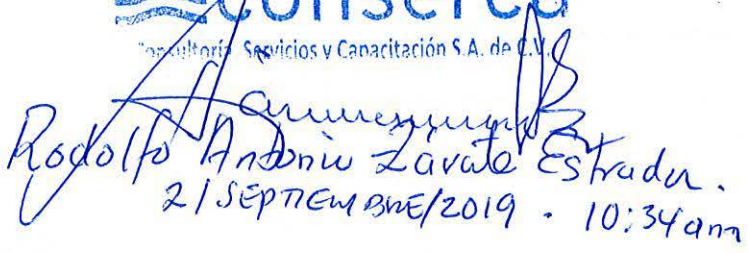 conserca
Consultoría, Servicios y Capacitación S.A. de C.V.
Rodolfo Antonio Zavate Estrada.
2/SEPTIEMBRE/2019 . 10:34 am